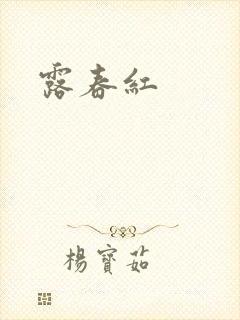 露春紅
楊寶茹